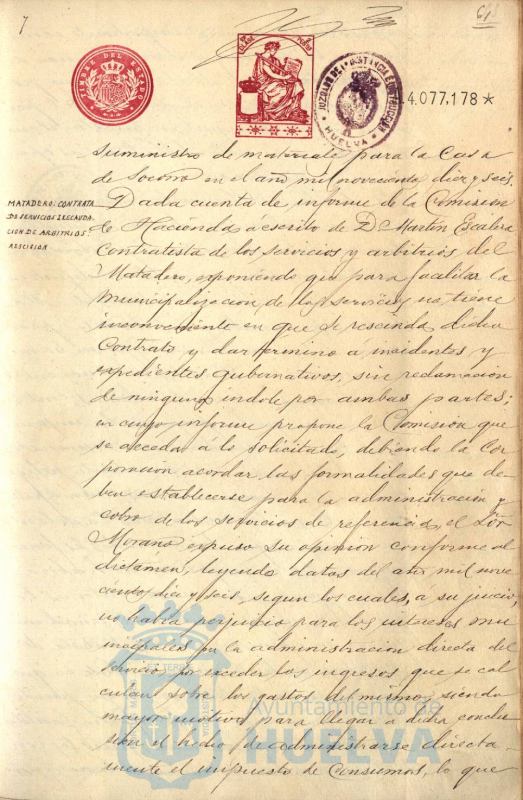 7
TIMBRE DEL ESTADO
JUZGADO DE 1ª INSTANCIA E INSTRUCCION
HUELVA
4.077.178 *
suministro de materiale para la Casa
de Socorro en el año mil novecientos diez y seis.
MATADERO: CONTRATA
DE SERVICIOS I RECAUDA-
CION DE ARBITRIOS:
RESCISION
Dada cuenta de informe de la Comision
de Hacienda á escrito de D. Martin Escalera
Contratista de los servicios y arbitrios del
Matadero, exponiendo que para facilitar la
municipalizacion de los servicios no tiene
inconveniente en que se rescinda dicho
Contrato y dar termino á incidentes y
expedientes gubernativos, sin reclamacion
de ninguna indole por ambas partes;
en cuyo informe propone la Comision que
se acceda á lo solicitado, debiendo la Cor
poracion acordar las formalidades que de-
ben establecerse para la administracion y
cobro de los servicios de referencia, el Sor
Morano expuso su opinion conforme al
dictamen, leyendo datos del año mil nove
cientos diez y seis, segun los cuales, a su juicio,
no habia perjuicio para los intereses mu
nicipales en la administracion directa del
servicio por exceder los ingresos que se cal
culan sobre los gastos del mismo, siendo
mayor motivo para llegar a dicha conclu
sion el hecho de administrarse directa-
mente el impuesto de Consumos, lo que
Ayuntamiento de
HUELVA